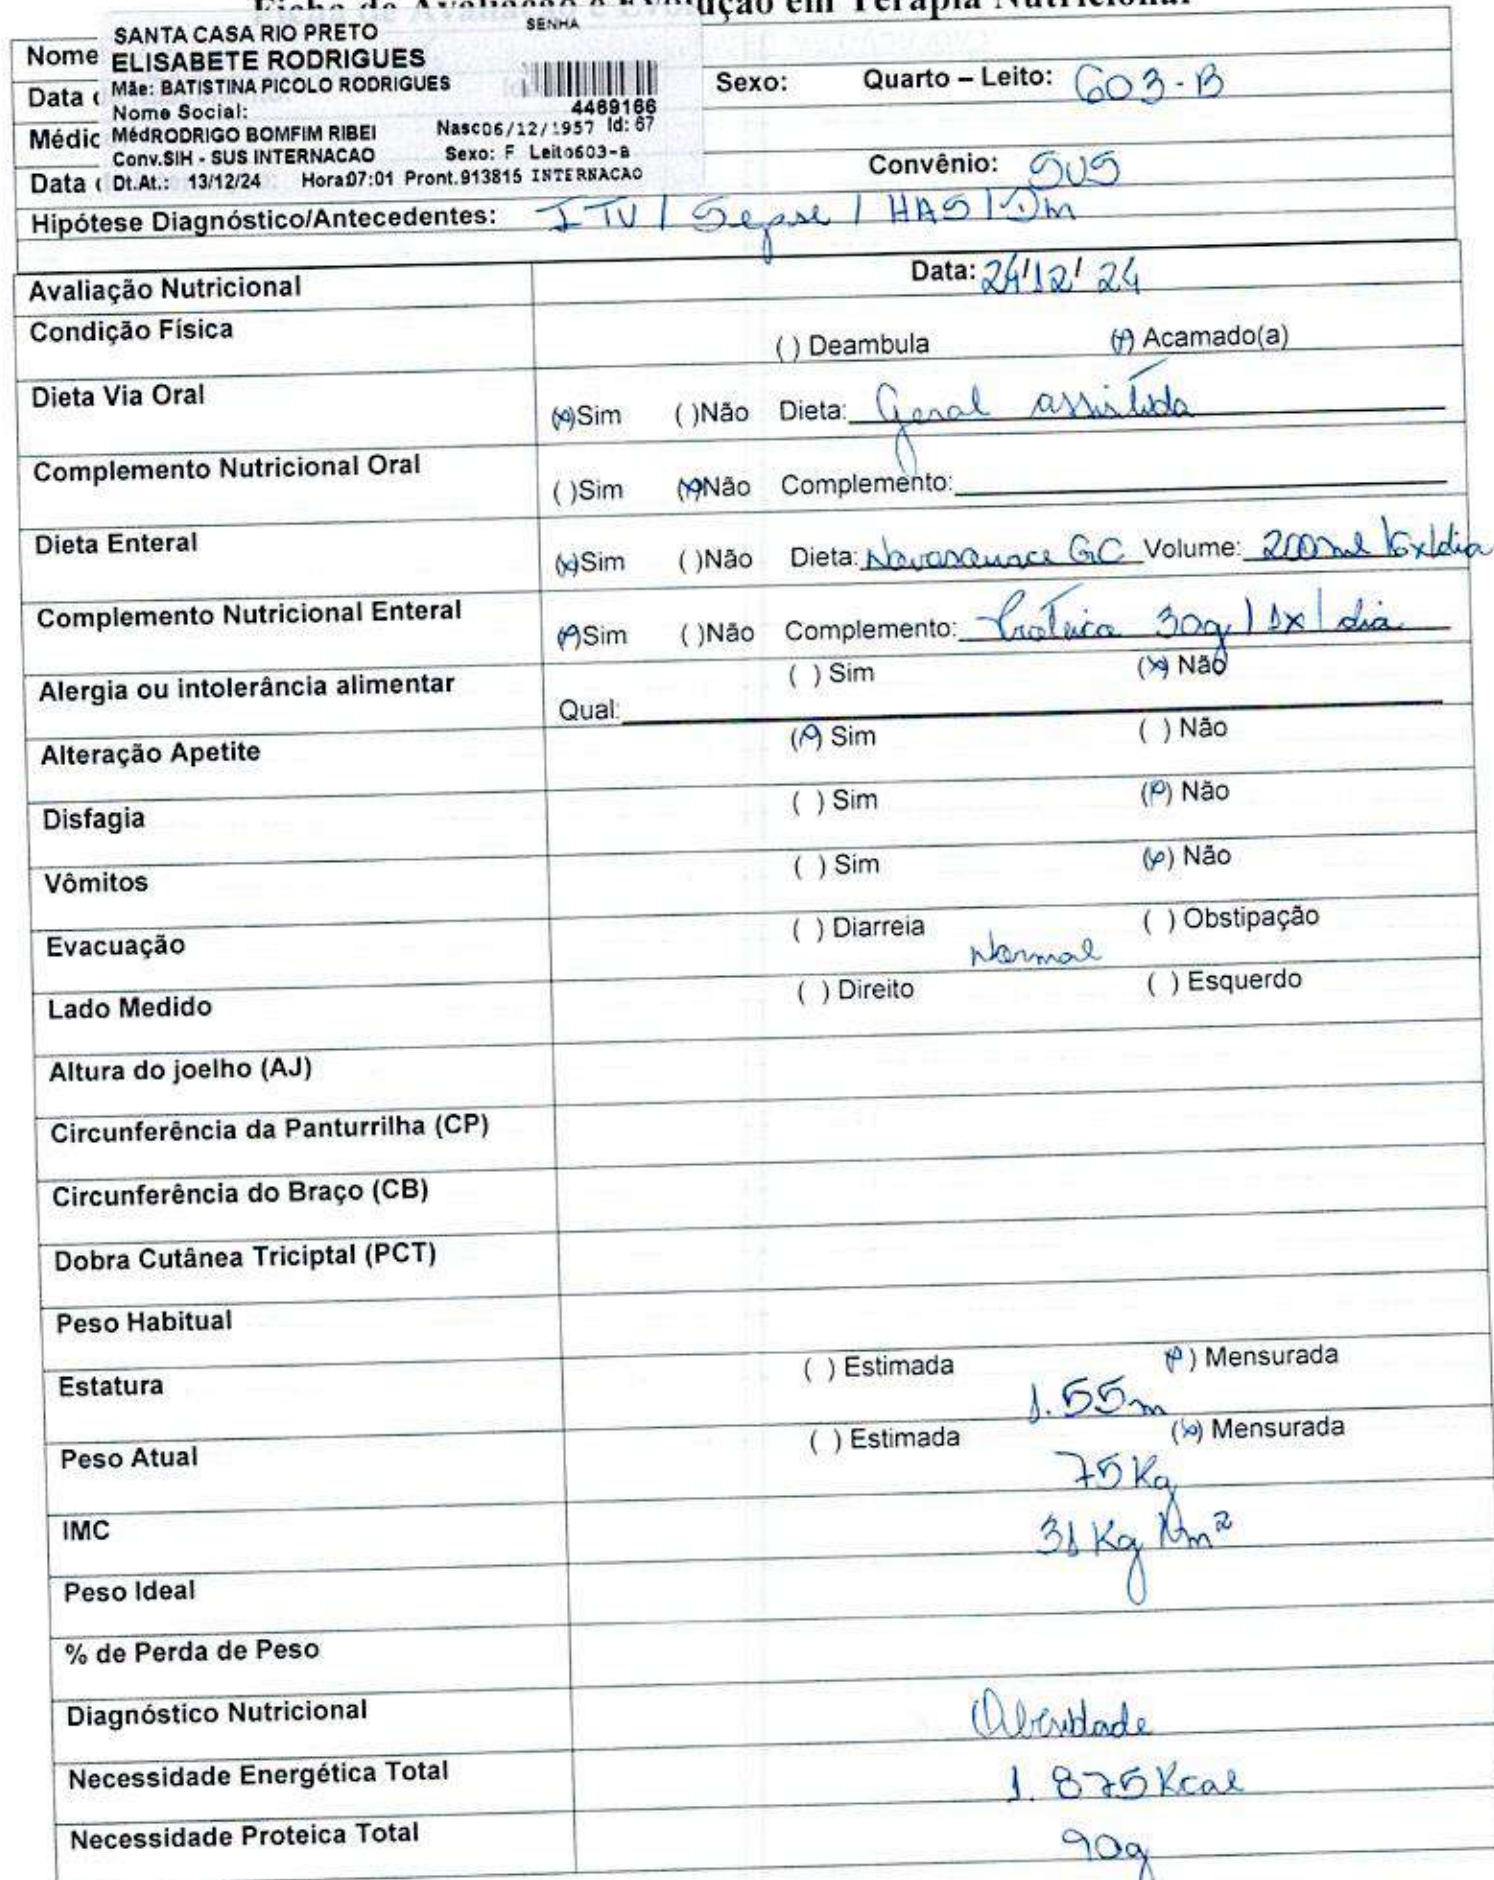 Ficha de Avaliação e Evolução em Terapia Nutricional
SANTA CASA RIO PRETO SENHA
Nome ELISABETE RODRIGUES
Mãe: BATISTINA PICOLO RODRIGUES
Sexo: Quarto – Leito: 603-B
Data
Nome Social: 4469166
Médic MédRODRIGO BOMFIM RIBEI Nasc06/12/1957 Id: 67
Conv.SIH - SUS INTERNACAO Sexo: F Leito603-B
Convênio: SUS
Data ( Dt.At.: 13/12/24 Hora07:01 Pront.913815 INTERNACAO
Hipótese Diagnóstico/Antecedentes: ITU / Sepse / HAS / Dm
Avaliação Nutricional Data: 24/12/24
Condição Física ( ) Deambula (x) Acamado(a)
Dieta Via Oral (x)Sim ( )Não Dieta: Geral assistida
Complemento Nutricional Oral ( )Sim (x)Não Complemento:
Dieta Enteral (x)Sim ( )Não Dieta: Novasource GC Volume: 200ml /6x/dia
Complemento Nutricional Enteral (x)Sim ( )Não Complemento: Proteica 30g / 1x / dia
Alergia ou intolerância alimentar ( ) Sim (x) Não
Qual:
Alteração Apetite (x) Sim ( ) Não
Disfagia ( ) Sim (x) Não
Vômitos ( ) Sim (x) Não
Evacuação ( ) Diarreia Normal ( ) Obstipação
Lado Medido ( ) Direito ( ) Esquerdo
Altura do joelho (AJ)
Circunferência da Panturrilha (CP)
Circunferência do Braço (CB)
Dobra Cutânea Triciptal (PCT)
Peso Habitual
Estatura ( ) Estimada (x) Mensurada
1.55m
Peso Atual ( ) Estimada (x) Mensurada
75Kg
IMC 31 Kg/m²
Peso Ideal
% de Perda de Peso
Diagnóstico Nutricional Obesidade
Necessidade Energética Total 1.875Kcal
Necessidade Proteica Total 90g